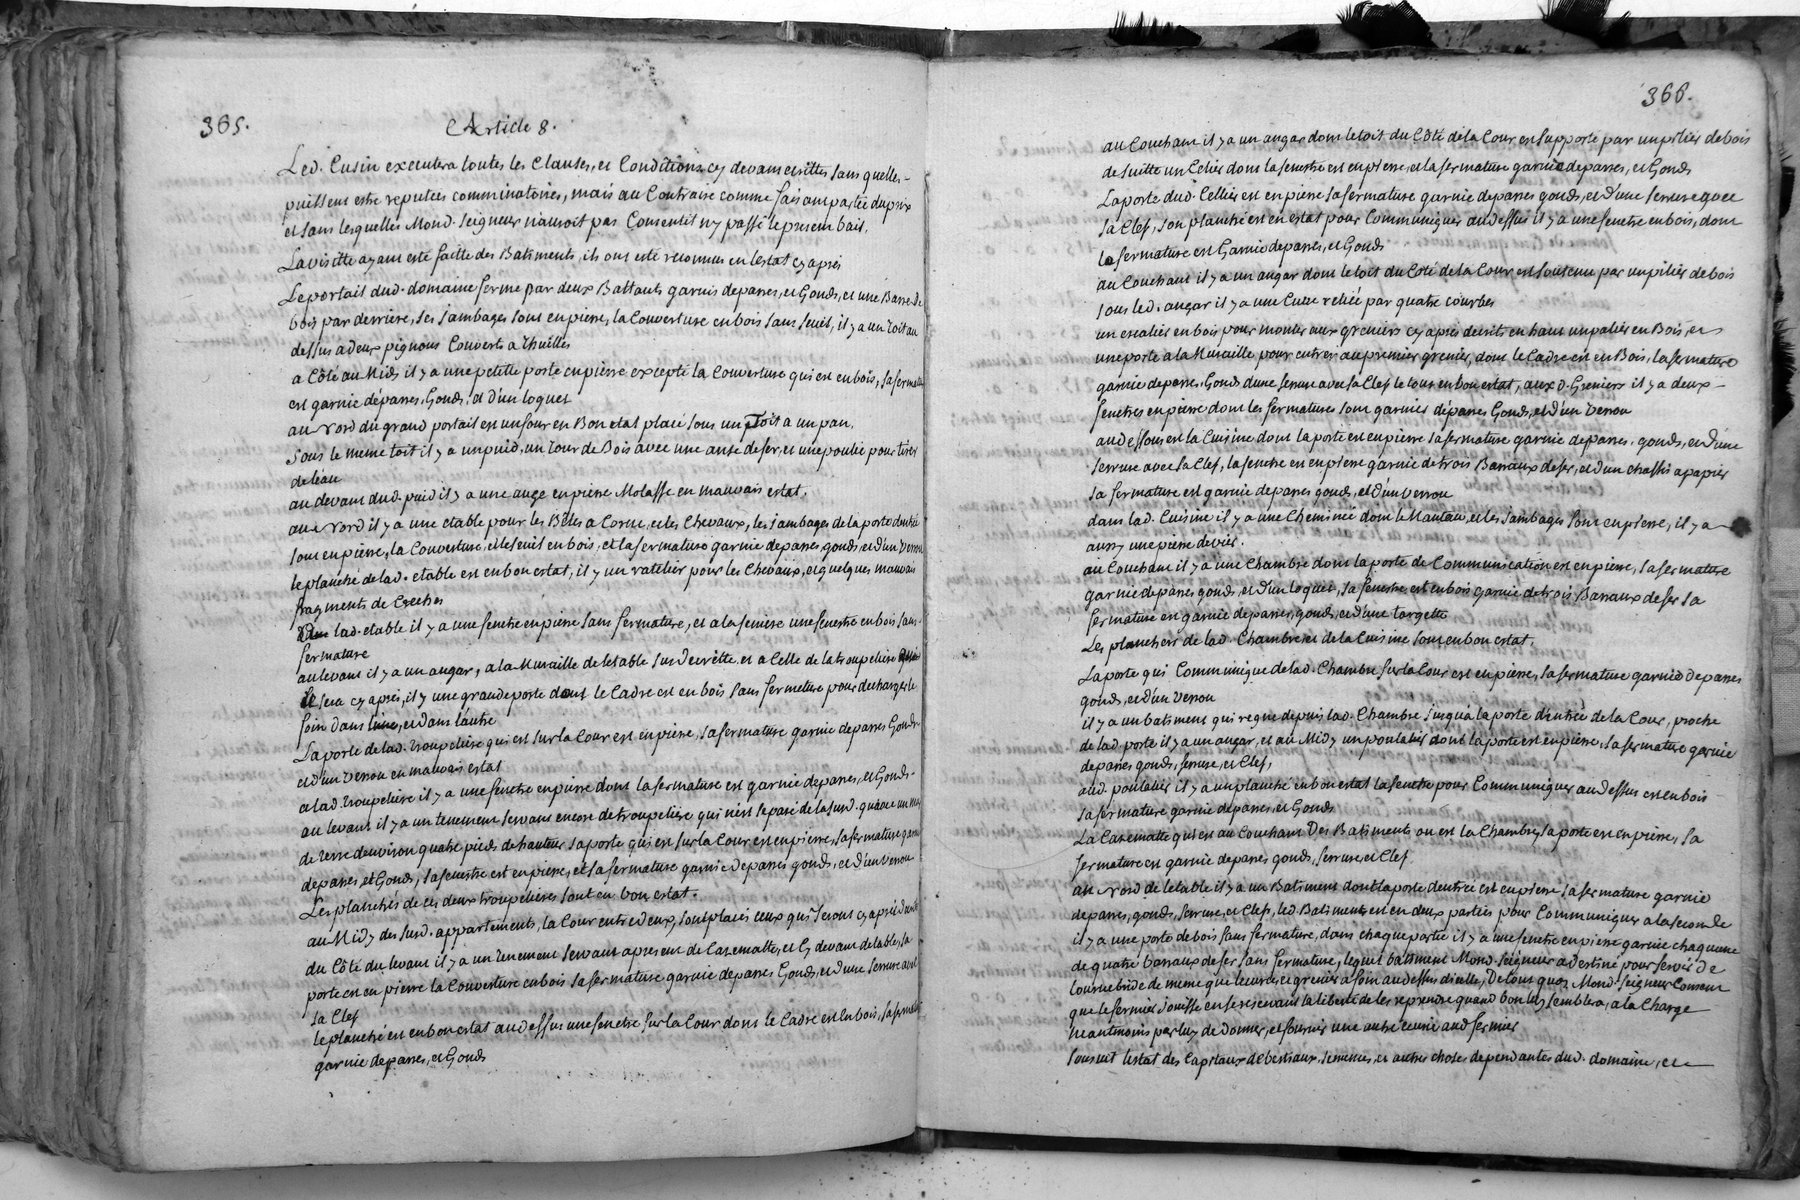 365.
Article 8.
Led. Cusin executera toutes les Clauses, et Conditions cy devant ecrittes sans quelles
puissent estre reputées comminatoires, mais au Contraire comme faisant partie du prix
et sans lesquelles Mond. Seigneur n'auroit pas Consentit ny passé le present bail.
La visitte ayant esté faitte des Batiments, ils ont esté reconnus en l'estat cy après
Le portail dud. domaine ferme par deux Battants garnis de panes, et Gonds, et une Barre de
bois par derriere, ses jambages sont en pierre, la Couverture en bois sans seuil, il y a un toit au
dessus a deux pignons Couverts a Thuilles
a Côté au Midy il y a une petitte porte en pierre excepté la Couverture qui est en bois, sa fermature
est garnie de panes, Gonds, et d'un loquet
au Nord du grand portail est un four en Bon etat placé sous un Toit a un pan.
Sous le meme toit il y a un puid, un tour de Bois avec une anse de fer, et une poulie pour tirer
de l'eau
au devant dud. puid il y a une auge en pierre Molasse en mauvais estat.
au Nord il y a une etable pour les Bêtes a Corne, et les Chevaux, les jambages de la porte d'entrée
sont en pierre, la Couverture, et le seuil en bois, et la fermature garnie de panes, gonds, et d'un Verrou
le planché de lad. etable est en bon estat, il y un ratelier pour les Chevaux, et quelques mauvais
fragments de Creches
lad. etable il y a une fenetre en pierre sans fermature, et a la feniere une fenestre en bois sans
fermature
au levant il y a un angar, a la Muraille de l'etable sus decritte et a Celle de la troupeliere
sera cy après, il y une grande porte dont le Cadre est en bois sans fermeture pour decharger le
foin dans l'une, et dans l'autre
La porte de lad. troupeliere qui est sur la Cour est en pierre, sa fermature garnie de panes Gonds
et d'un Verrou en mauvais estat
a lad. troupeliere il y a une fenetre en pierre dont la fermature est garnie de panes, et Gonds.
au levant il y a un tenement servant encore de troupeliere qui n'est separé de la susd. que par un mur
de terre d'environ quatre pieds de hauteur, sa porte qui est sur la Cour est en pierre, sa fermature garnie
de panes, et Gonds, sa fenestre est en pierre, et sa fermature garnie de panes gonds, et d'un Verrou
Les planchés de ces deux troupelieres sont en bon estat.
au Midy des susd. appartements, la Cour entre deux, sont placés ceux qui seront cy après
du Côté du levant il y a un tenement servant a present de Casematte, et Cy devant d'etable, sa
porte est en pierre la Couverture en bois sa fermature garnie de panes Gonds, et d'une serrure avec
sa Clef
le planché est en bon estat au dessus une fenetre sur la Cour dont le Cadre est en bois, sa fermature
garnie de panes, et Gonds
366.
au Couchant il y a un angar dont le toit du Côté de la Cour est supporté par un pilier de bois
de suitte un Celier dont la fenestre est en pierre, et la fermature garnie de panes, et Gonds
La porte dud. Cellier est en pierre sa fermature garnie de panes gonds, et d'une serrure avec
sa Clef, son planché est en estat pour Communiquer au dessus il y a une fenetre en bois, dont
la fermature est Garnie de panes, et Gonds
au Couchant il y a un angar dont le toit du Coté de la Cour est soutenu par un pilier de bois
sous led. angar il y a une Cuve reliée par quatre courbes
un escalier en bois pour monter aux greniers cy après decrits en haut un palier en Bois, et
une porte a la Muraille pour entrer au premier grenier, dont le Cadre est en Bois, la fermature
garnie de panes, Gonds d'une serrure avec sa Clef le tout en bon estat, aux d. Greniers il y a deux
fenetres en pierre dont les fermatures sont garnies de panes Gonds, et d'un Verrou
au dessous est la Cuisine dont la porte est en pierre sa fermature garnie de panes, gonds, et d'une
serrure avec sa Clef, la fenetre est en pierre garnie de trois Barraux de fer, et d'un chassis a papier
sa fermature est garnie de panes gonds, et d'un Verrou
dans lad. Cuisine il y a une Cheminée dont le Manteau, et les jambages sont en pierre, il y a
aussy une pierre d'evier.
au Couchant il y a une Chambre dont la porte de Communication est en pierre, sa fermature
garnie de panes gonds, et d'un loquet, sa fenestre est en bois garnie de trois Barraux de fer sa
fermature est garnie de panes, gonds, et d'une targette
Les planchers de lad. Chambre et de la Cuisine sont en bon estat.
La porte qui Communique de lad. Chambre sur la Cour est en pierre, sa fermature garnie de panes
gonds, et d'un Verrou
il y a un batiment qui regne depuis lad. Chambre jusqu'à la porte d'entrée de la Cour, proche
de lad. porte il y a un angar, et au Midy un poulalier dont la porte est en pierre, sa fermature garnie
de panes gonds, serrure, et Clef,
aud. poulalier il y a un planché en bon estat la fenetre pour Communiquer au dessus est en bois
sa fermature garnie de panes, et Gonds
La Casematte qui est au Couchant Des Batiments ou est la Chambre, sa porte est en pierre, sa
fermature est garnie de panes gonds, serrure, et Clef
au Nord de l'etable il y a un Batiment dont la porte d'entrée est en pierre sa fermature garnie
de panes, gonds, serrure, et Clef, led. Batiment est en deux parties pour Communiquer a la seconde
il y a une porte de bois sans fermature, dans chaque partie il y a une fenetre en pierre garnie chaqune
de quatre barraux de fer sans fermature, lequel batiment Mond. Seigneur a destiné pour servir de
tournebride de meme que l'ecurie, et grenier a foin au dessus d'icelle, De tout quoy Mond. Seigneur Consent
que le fermier jouisse en se reservant la liberté de les reprendre quand bon luy semblera, a la Charge
neantmoins par luy de Donner, et fournir une autre ecurie aud. fermier
sensuit l'estat des Capitaux de bestiaux, semences, et autres choses dependantes dud. domaine, et